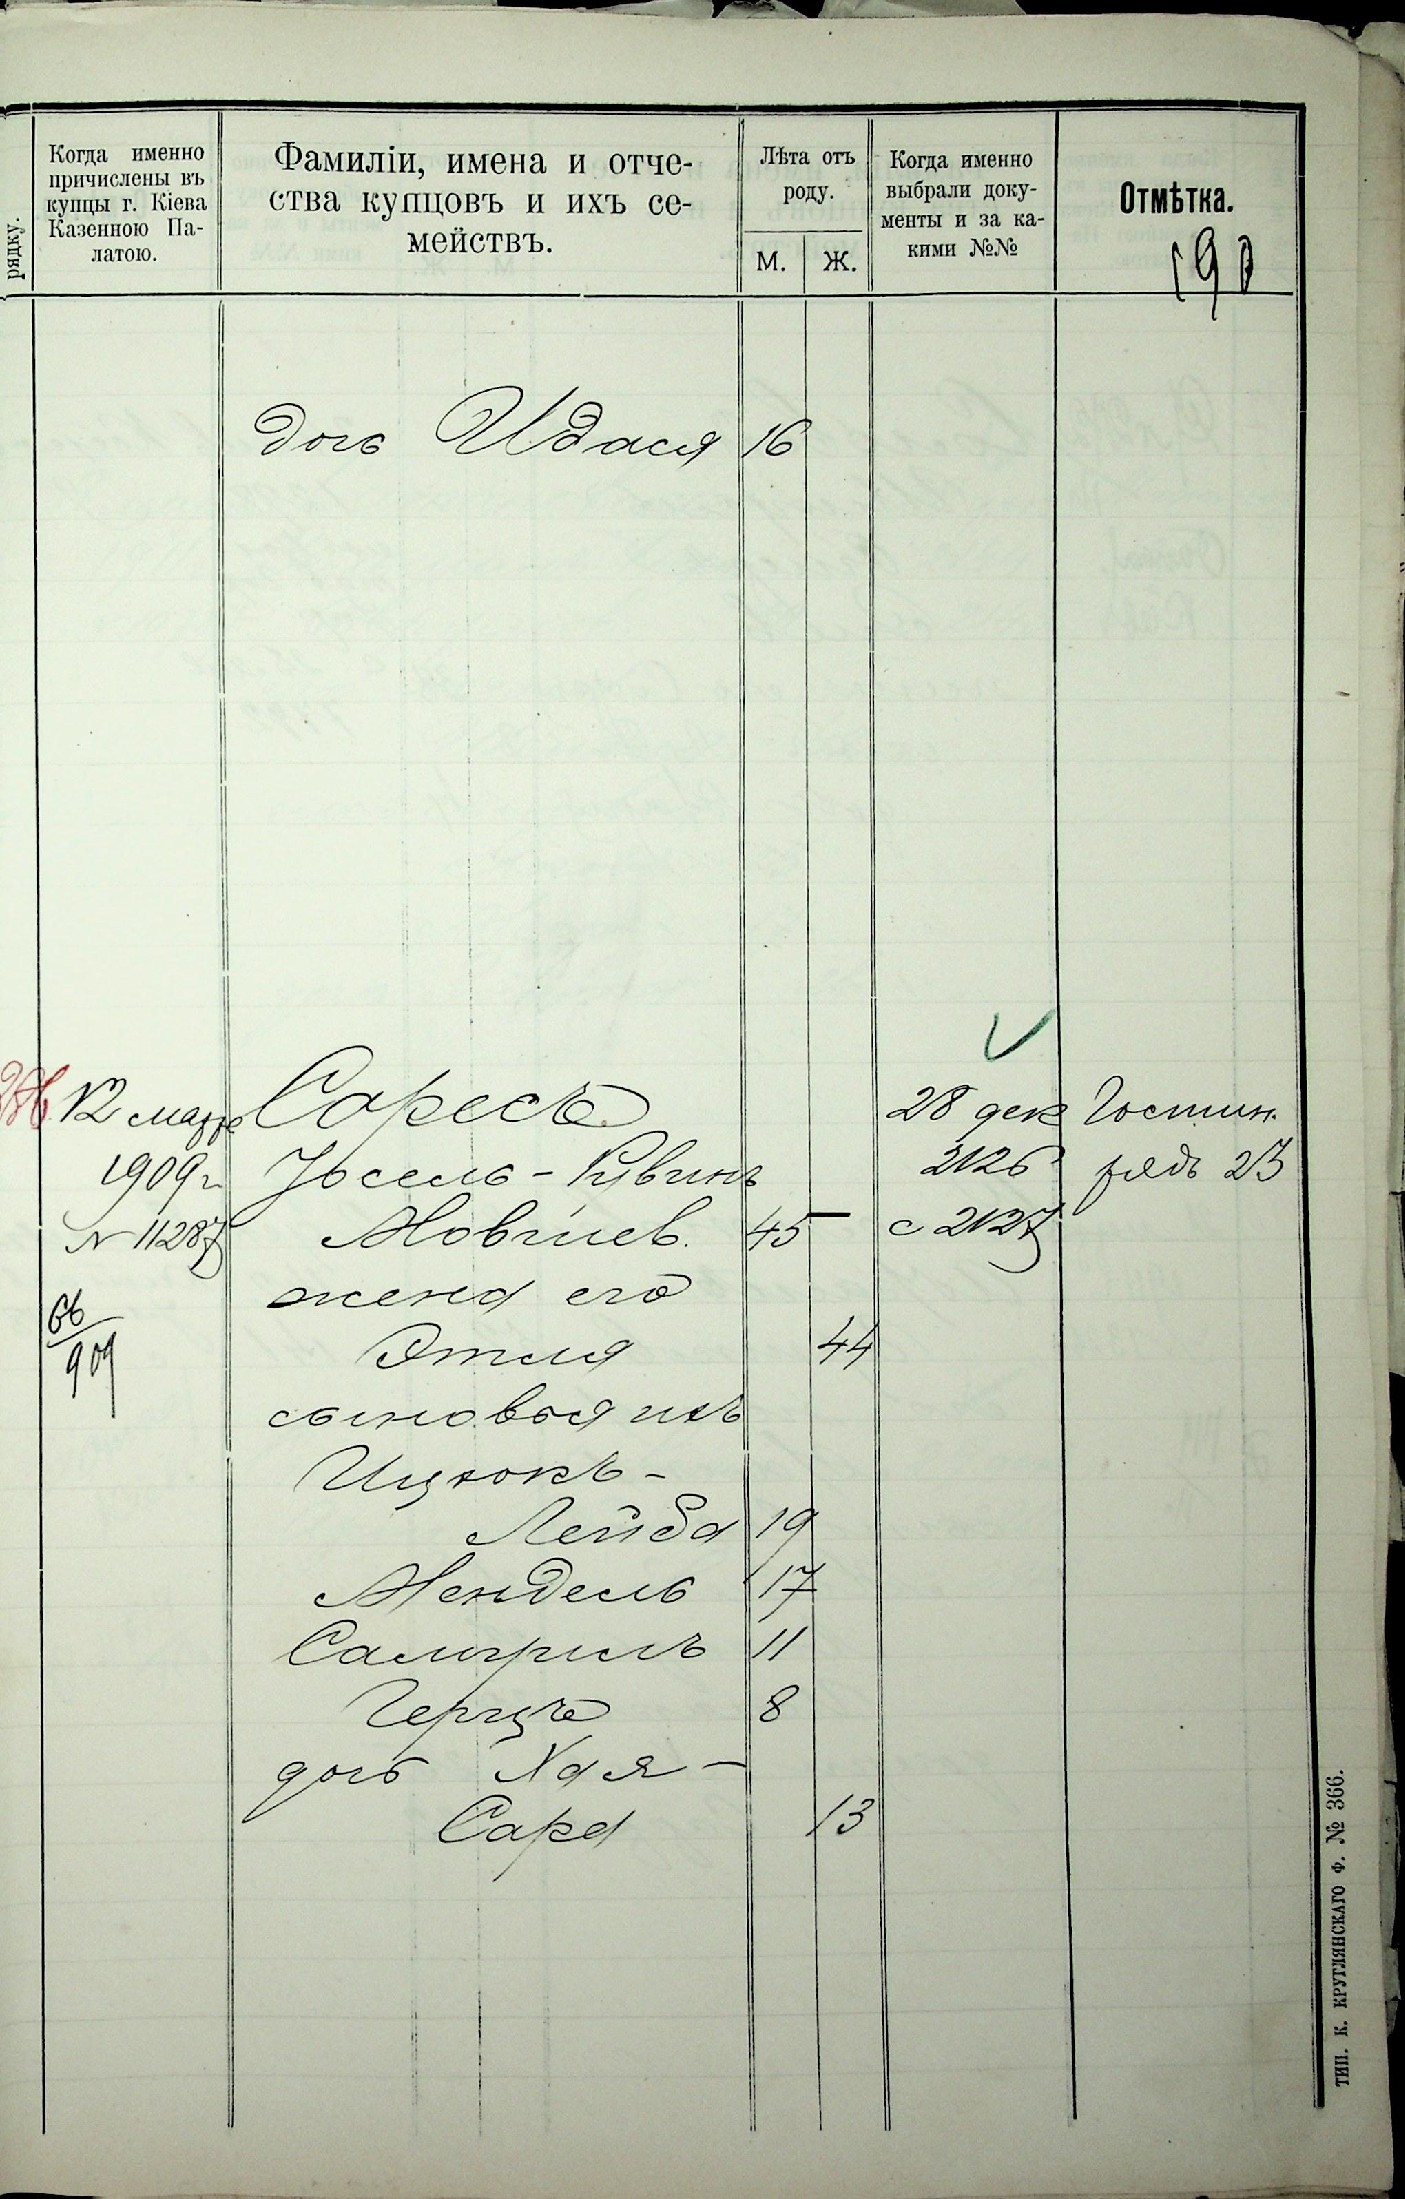 рядку.
Когда именно
причислены въ
купцы г. Кіева
Казенною Па-
латою.
Фамиліи, имена и отче-
ства купцовъ и ихъ се-
мействъ.
Лѣта отъ
роду.
М. Ж.
Когда именно
выбрали доку-
менты и за ка-
кими №№
Отмѣтка.
190
дочь Идася 16
12 марта Саресъ 28 дек Гостин.
1909 г. Іосель-Рувинъ 2126 рядъ 23
№ 11287 Мовшев. 45 — с 2127
жена его
66/909
Этля 44
сыновья ихъ
Ицхокъ-
Лейба 19
Мендель 17
Самуилъ 11
Герцъ 8
дочь Хая-
Сара 13
ТИП. К. КРУГЛЯНСКАГО Ф. № 366.